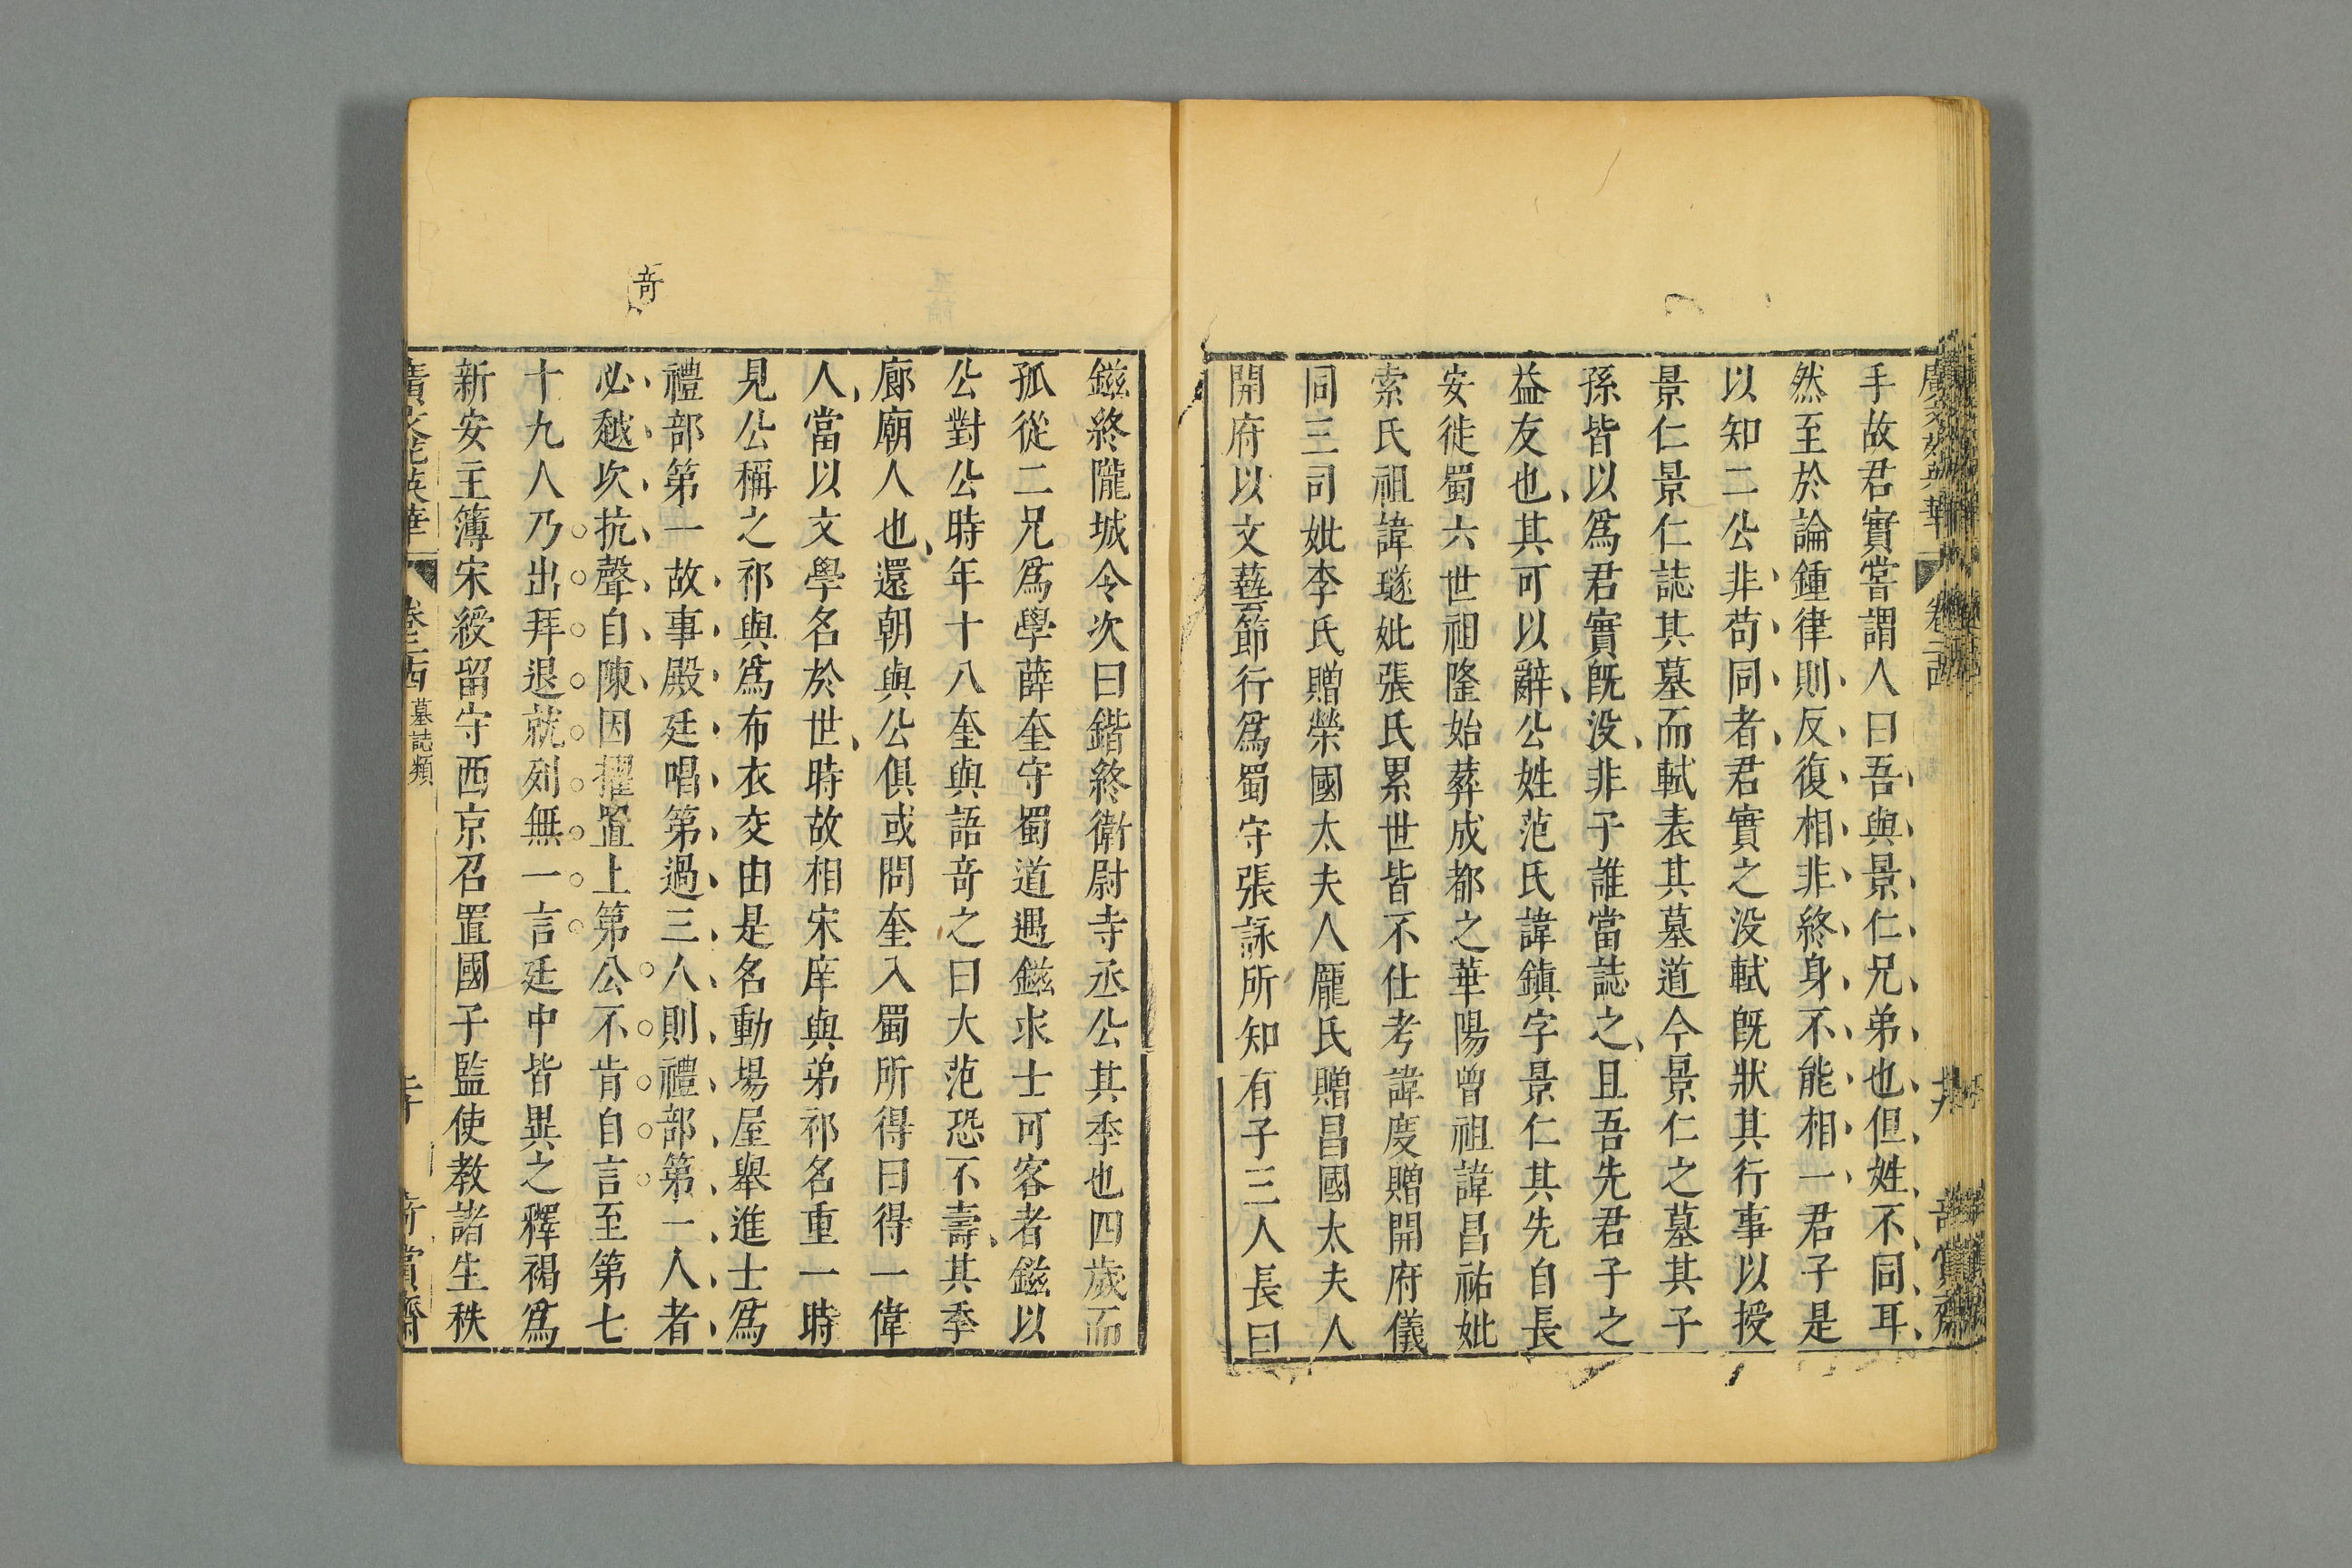 手故君實嘗謂人曰吾與景仁兄弟也但姓不同耳
然至於論鍾律則反復相非終身不能相一君子是
以知二公非苟同者君實之没軾旣狀其行事以授
景仁景仁誌其墓而軾表其墓道今景仁之墓其子
孫皆以爲君實旣没非子誰當誌之且吾先君子之
益友也其可以辭公姓范氏諱鎮字景仁其先自長
安徙蜀六世祖隆始葬成都之華陽曾祖諱昌祐妣
索氏祖諱璲妣張氏累世皆不仕考諱度贈開府儀
同三司妣李氏贈榮國太夫人龐氏贈昌國太夫人
開府以文藝節行爲蜀守張詠所知有子三人長曰
奇
鎡終隴城令次曰鍇終衛尉寺丞公其季也四歲而
孤從二兄爲學薛奎守蜀道遇鎡求士可客者鎡以
公對公時年十八奎與語奇之曰大范恐不壽其季
廊廟人也還朝與公俱或問奎入蜀所得曰得一偉
人當以文學名於世時故相宋庠與弟祁名重一時
見公稱之祁與爲布衣交由是名動場屋舉進士爲
禮部第一故事殿廷唱第過三人則禮部第一人者
必越次抗聲自陳因擢置上第公不肯自言至第七
十九人乃出拜退就列無一言廷中皆異之釋褐爲
新安主簿宋綬留守西京召置國子監使教諸生秩
廣文苑英華 卷二西 墓誌類 奇賞齋